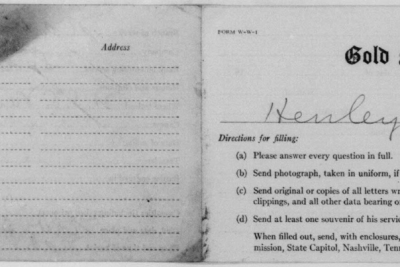 Address
FORM W-W-1
Gold
Henley
Directions for filling:
(a) Please answer every question in full.
(b) Send photograph, taken in uniform, if
(c) Send original or copies of all letters
clippings, and all other data bearing
(d) Send at least one souvenir of his
When filled out, send, with enclosures,
mission, State Capitol, Nashville,